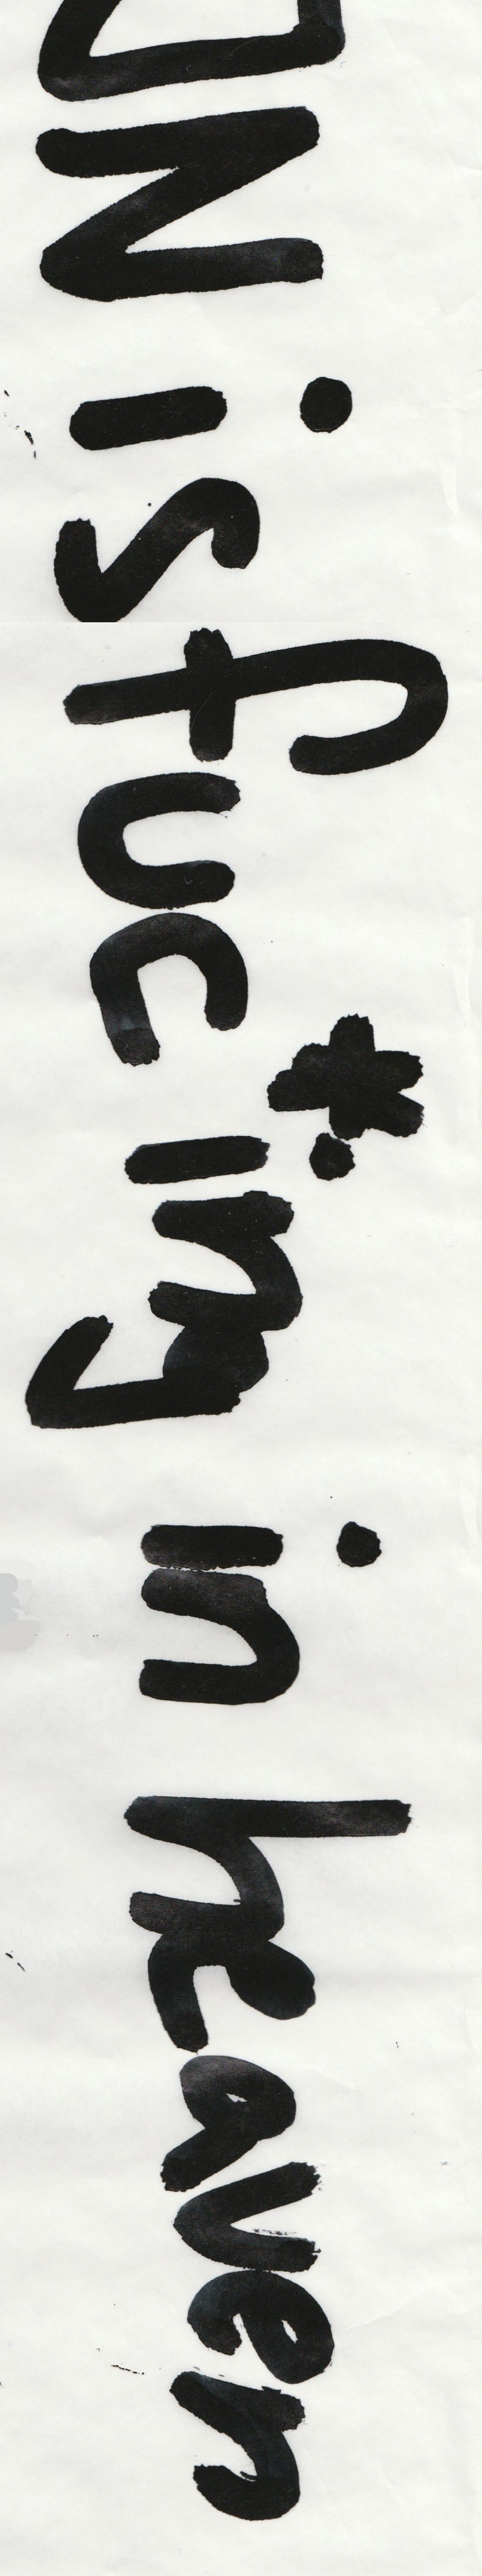 N is fuc*ing in heaven